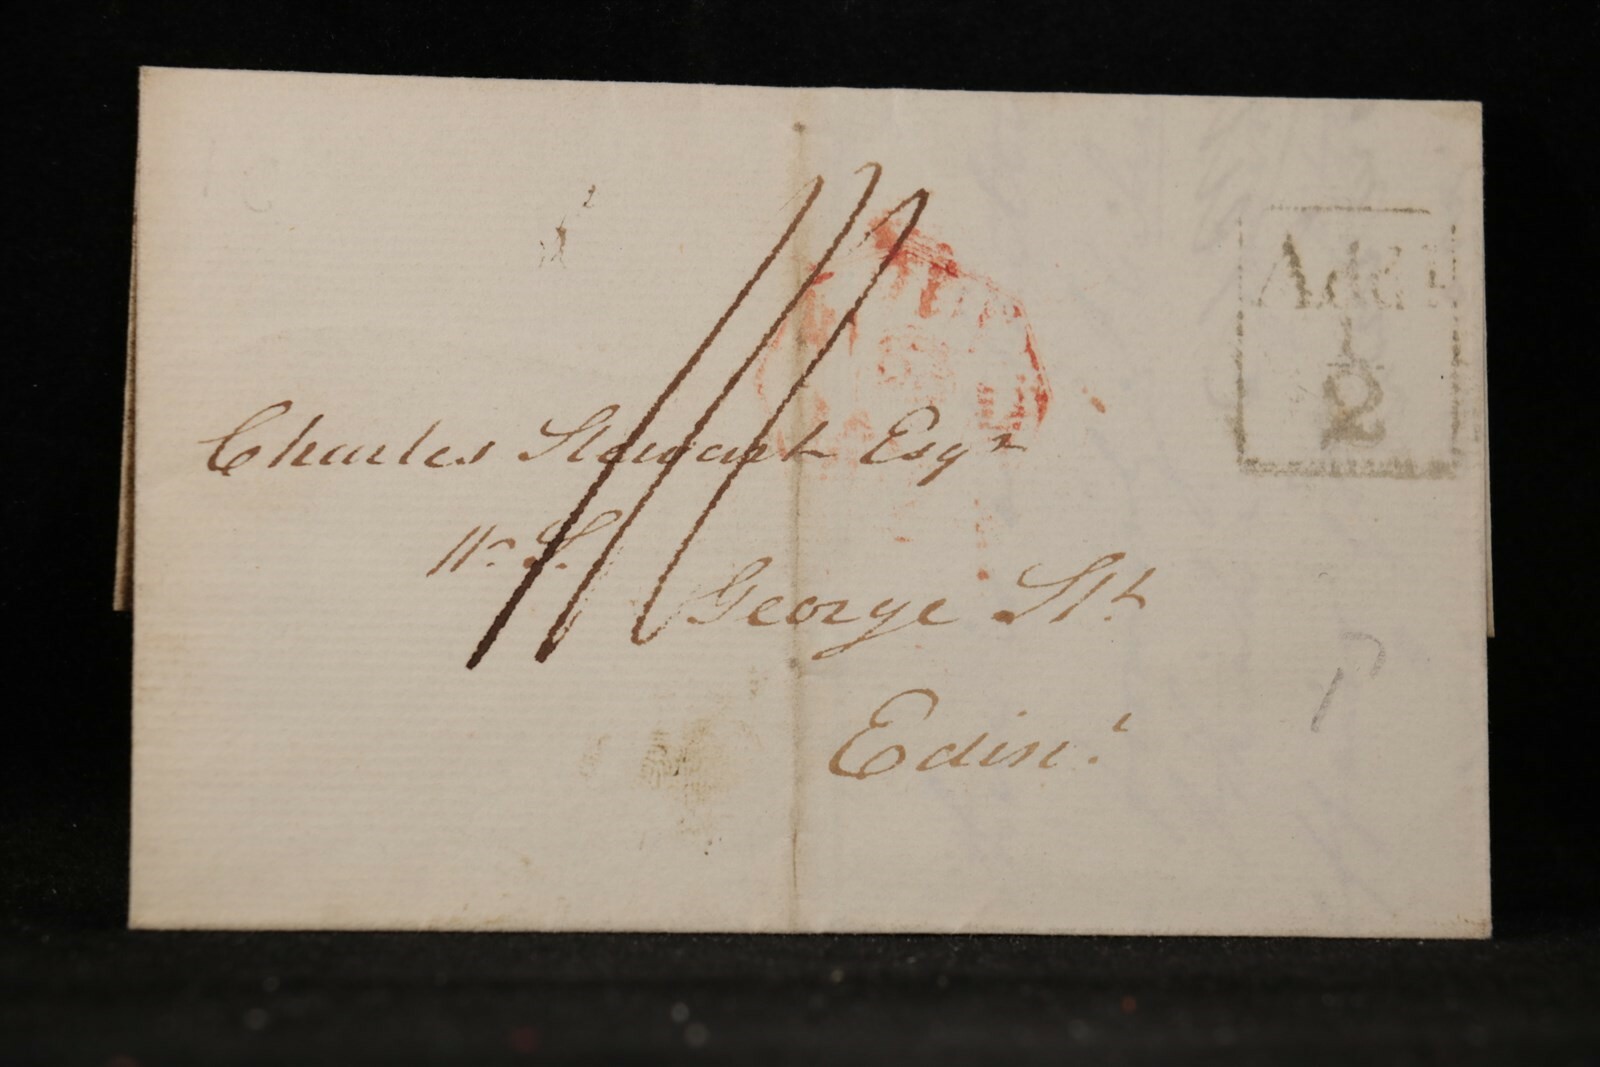 Add ½
Charles Stewart Esqr
W. S.
George Stt
Edinr